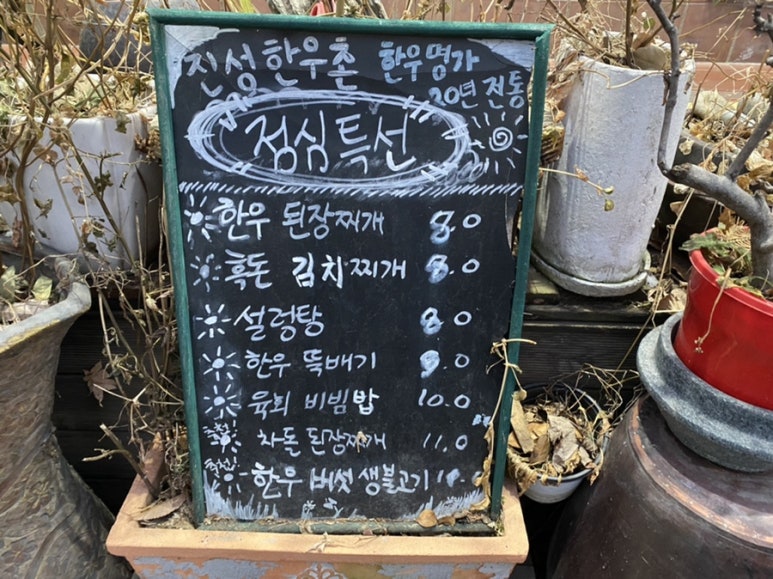 진성한우촌 한우명가
20년 전통
점심특선
한우 된장찌개 8.0
흑돈 김치찌개 8.0
설렁탕 8.0
한우 뚝배기 9.0
육회 비빔밥 10.0
추천! 차돌 된장찌개 11.0
추천! 한우 버섯 생불고기